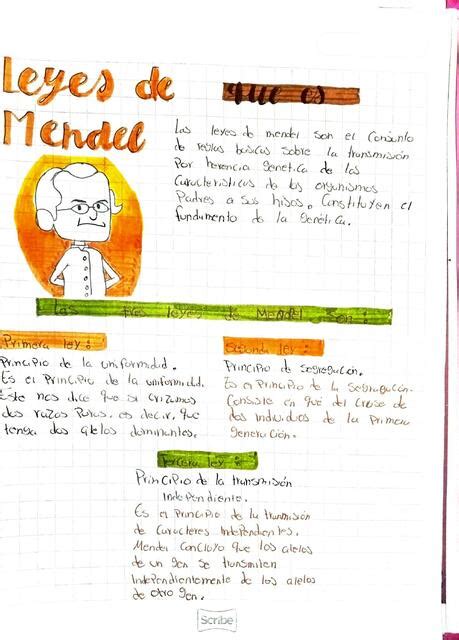 Leyes de
Mendel
que es
Las leyes de mendel son el conjunto
de reglas basicas sobre la transmisión
Por herencia genetica de las
Caracteristicas de los organismos
Padres a sus hijos. Constituyen el
fundamento de la Genética.
Las tres leyes de Mendel son:
Primera ley:
Principio de la uniformidad.
Es el Principio de la uniformidad.
Este nos dice que si cruzamos
dos razas Puras, es decir, que
tenga dos alelos dominantes.
Segunda ley:
Principio de segregación.
Es el Principio de la segregación.
Consiste en que del cruce de
dos individuos de la Primera
Generación.
Tercera ley:
Principio de la transmisión
Independiente.
Es el Principio de la tranmisión
de caracteres Independientes.
Mendel Concluyo que los alelos
de un gen se transmiten
Independientemente de los alelos
de otro gen.
Scribe